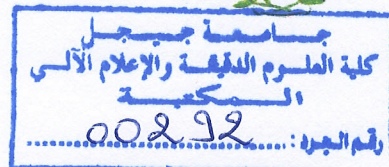 جامعة جيجل
كلية العلوم الدقيقة والإعلام الآلي
المكتبة
رقم الجرد: 00292